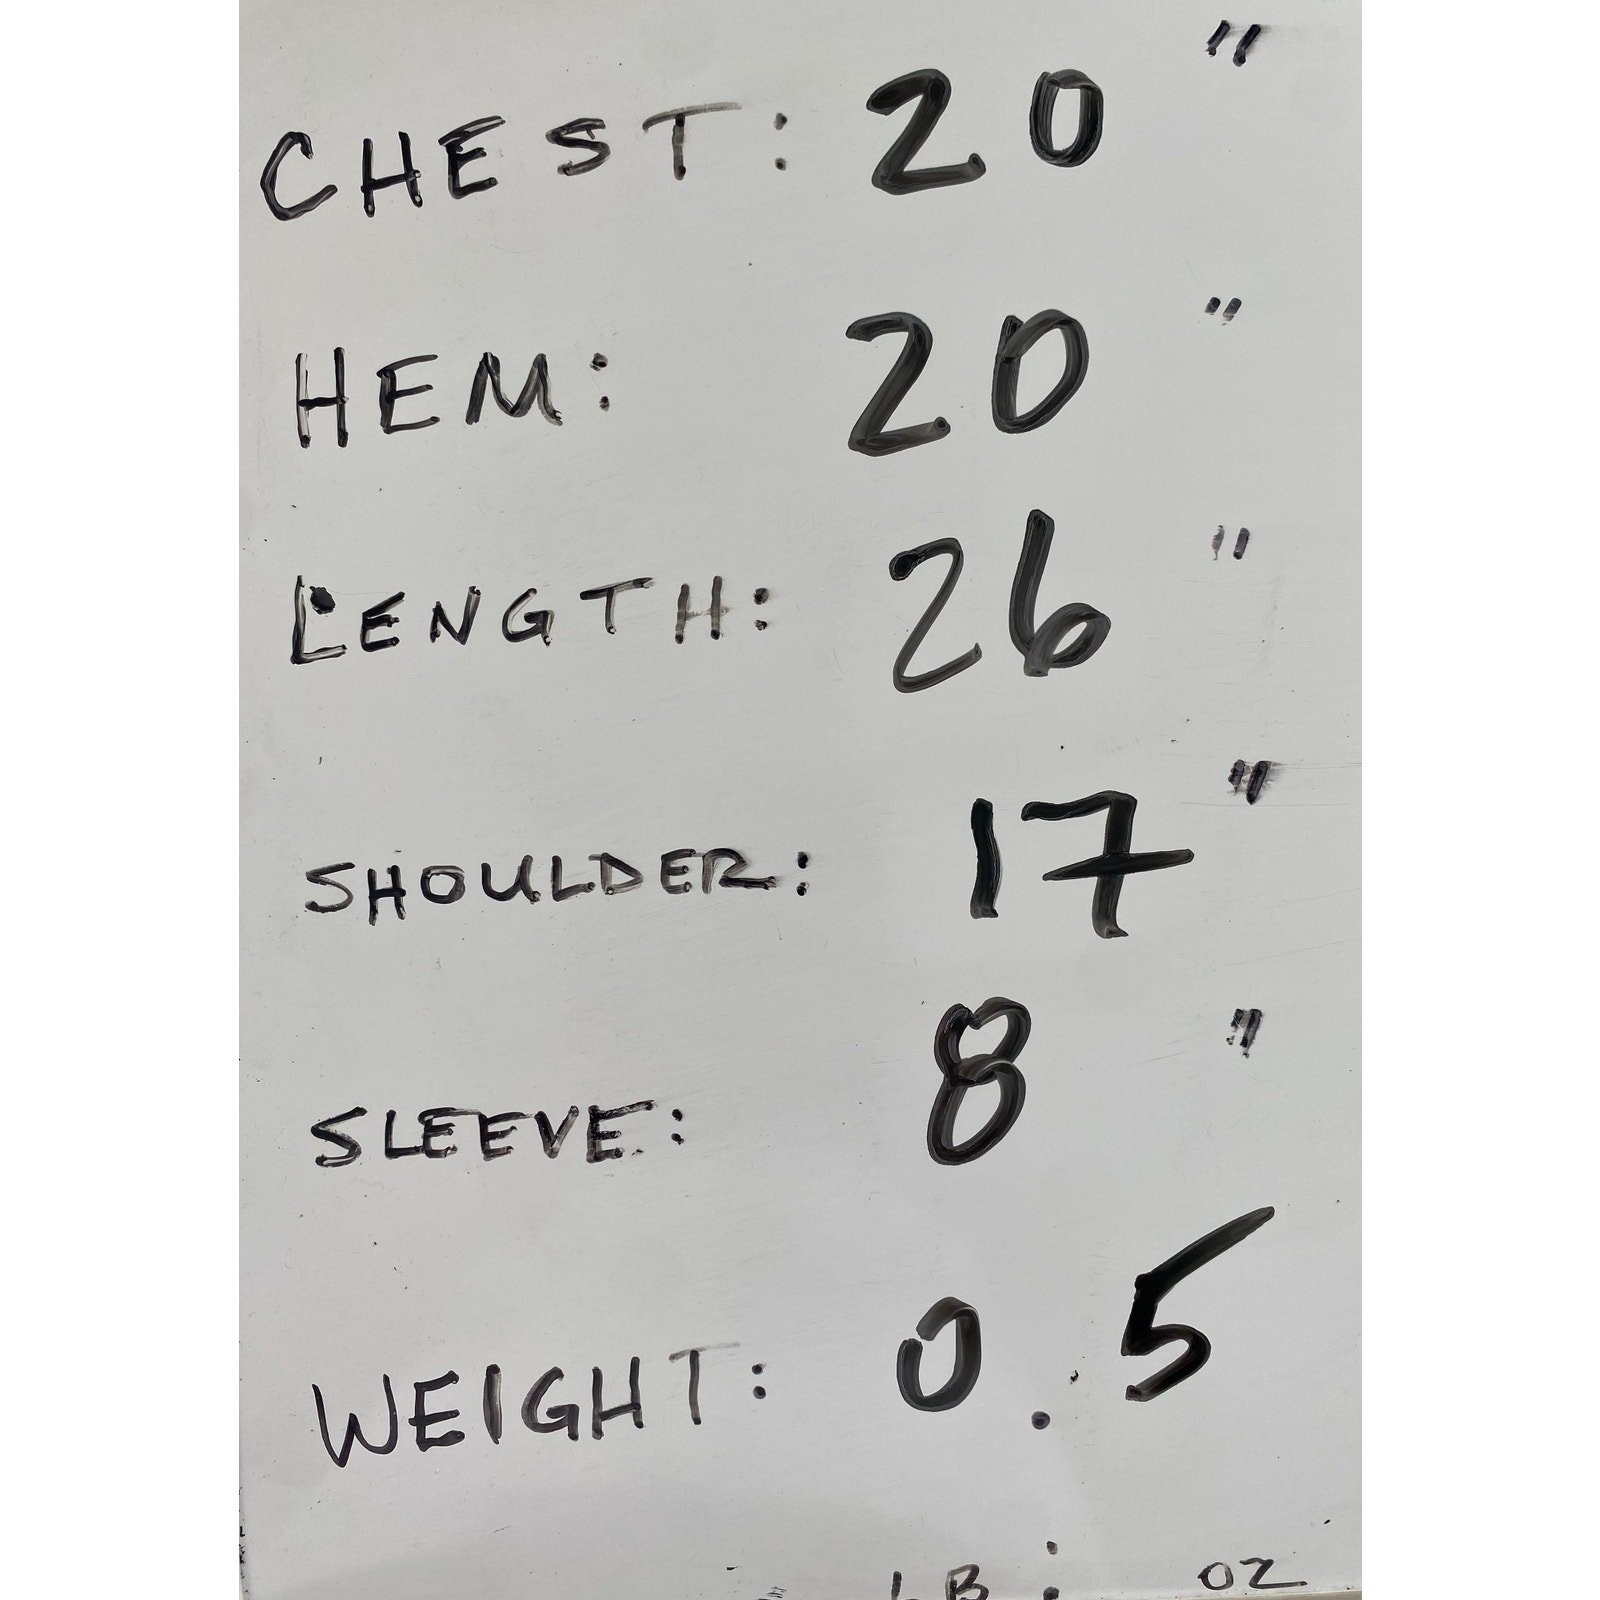 CHEST: 20"
HEM: 20"
LENGTH: 26"
SHOULDER: 17"
SLEEVE: 8"
WEIGHT: 0.5
LB : OZ